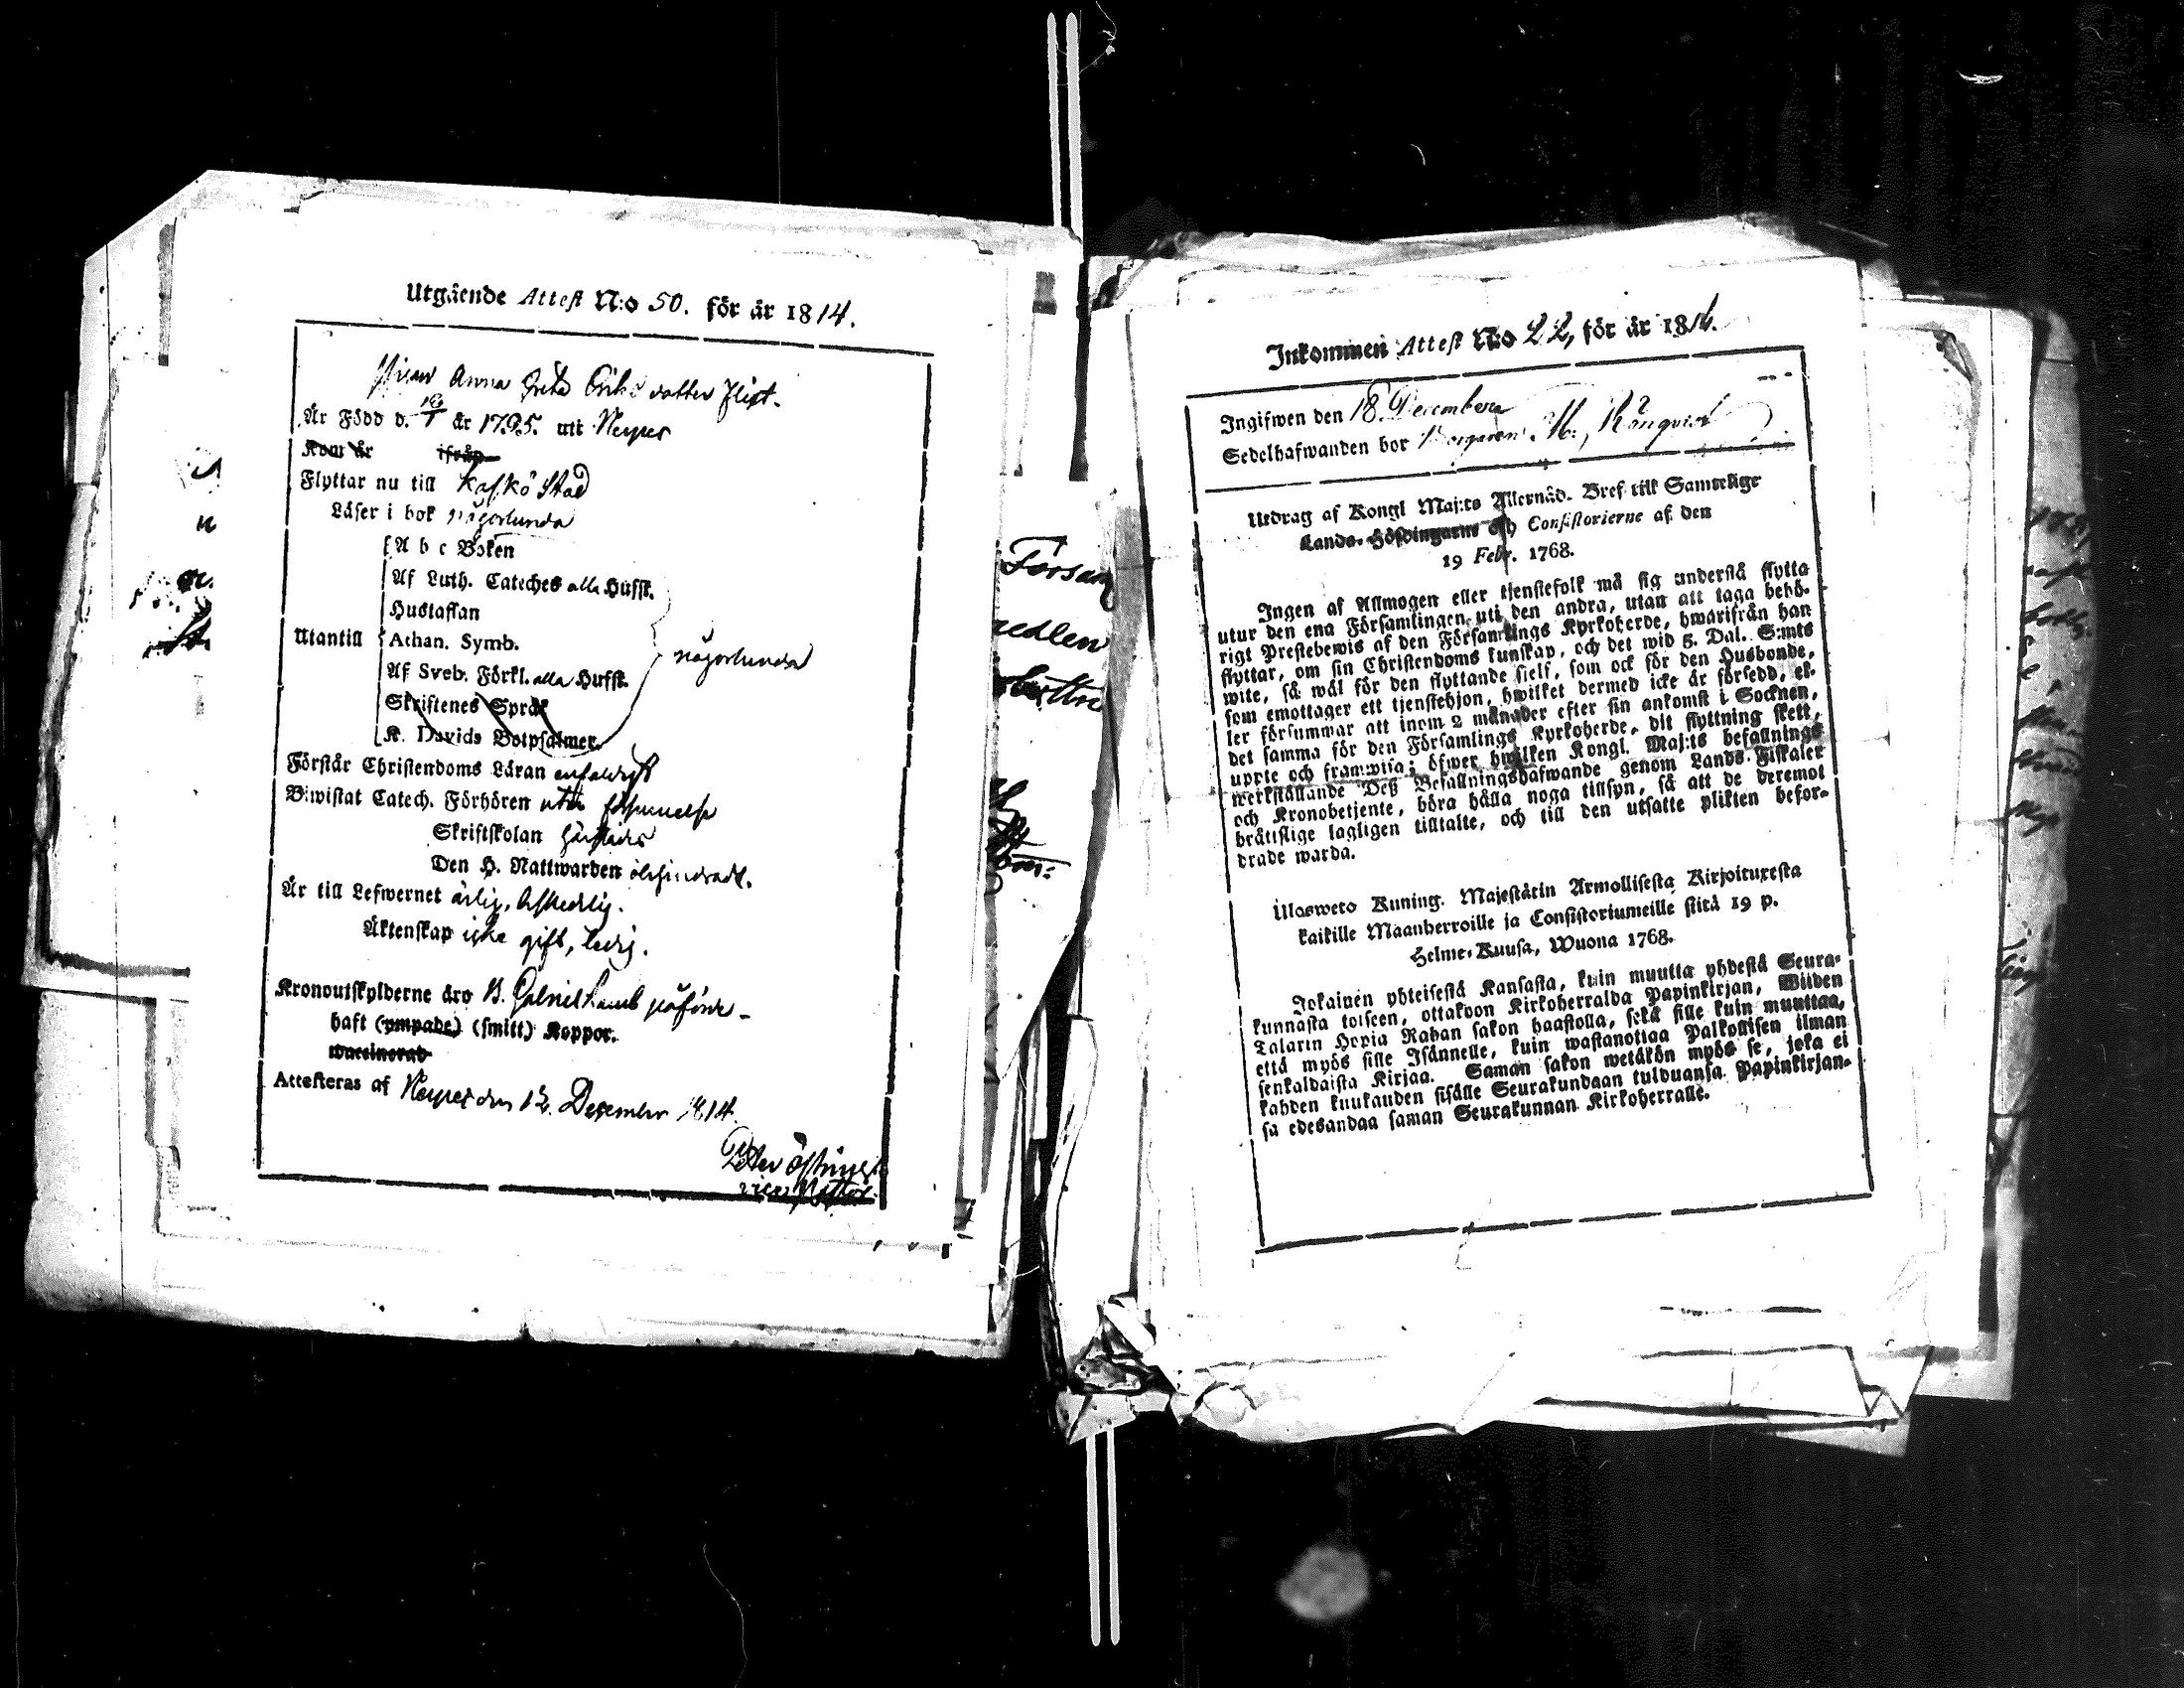 Utgående Attest N:o 50. för år 1814.
Pigan Anna Greta Eriks dotter Flixt.
Är Född d. 18/1 år 1795. uti Nerpes
Kom år ifrån
Flyttar nu till Kaskö Stad
Läser i bok någorlunda
A b c Boken
Af Luth. Cateches alla Hufst.
Hustaflan
Utantill Athan. Symb.
någorlunda
Af Sveb. Förkl. alla Hufst.
Skriftenes Språk
K. Davids Botpsalmer.
Förstår Christendoms Läran enfaldigt
Biwistat Catech. Förhören utan försummelse
Skriftskolan härstädes
Den H. Nattwarden ohehindradt.
Är till Lefwernet ärlig, beskedlig.
Äktenskap icke gift, ledig.
Kronoutskylderne äro B. Gabriel påförde
haft (ympade) (smitt) Koppor.
waccinerad
Attesteras af Nerpes den 12. December 1814.
Peter
vice Pastor.
Försam
Inkommen Attest N:o 22, för år 1814.
Ingifwen den 18. December
Sedelhafwanden bor Borgaren M. Rönqvist
Utdrag af Kongl Maj:ts Allernåd. Bref till Samtelige
Lands-Höfdingarne och Consistorierne af den
19 Febr. 1768.
Ingen af Allmogen eller tjenstefolk må sig understå flytta
utur den ena Församlingen uti den andra, utan att taga behö-
rigt Prestebewis af den Församlings Kyrkoherde, hwarifrån han
flyttar, om sin Christendoms kunskap, och det wid 5. Dal. S:mts
wite, så wäl för den flyttande sielf, som ock för den Husbonde,
som emottager ett tjenstehjon, hwilket dermed icke är försedd, el-
ler försummar att inom 2 månader efter sin ankomst i Socknen,
det samma för den Församlings Kyrkoherde, dit flyttning skett,
upte och framwisa; öfwer hwilken Kongl. Maj:ts befallnings
werkställande Deß Befallningshafwande genom Lands-Fiskaler
och Kronobetjente, böra hålla noga tillsyn, så att de deremot
brättslige lagligen tilltalte, och till den utsatte plikten befor-
drade warda.
Ulosweto Kuning. Majestätin Armollisesta Kirjoituxesta
kaikille Maanherroille ja Consistoriumeille siitä 19 p.
Helme-Kuusa, Wuona 1768.
Jokainen yhteisestä Kansasta, kuin muutta yhdestä Seura-
kunnasta toiseen, ottakoon Kirkoherralda Papinkirjan, Wiiden
Talarin Hopia Rahan sakon haastolla, sekä sille kuin muuttaa,
että myös sille Isännelle, kuin wastanottaa Palkollisen ilman
senkaldaista Kirjaa. Saman sakon wetäkön myös se, joka ei
kahden kuukauden sisälle Seurakundaan tulduansa Papinkirjan-
sa edesandaa saman Seurakunnan Kirkoherralle.